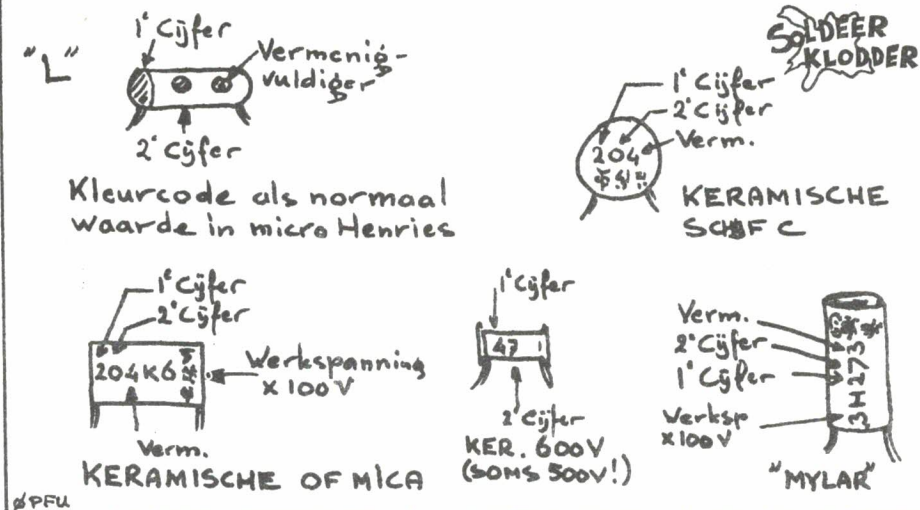 "L"
1e Cijfer
Vermenig-
vuldiger
2e Cijfer
Kleurcode als normaal
waarde in micro Henries
SOLDEER
KLODDER
1e Cijfer
2e Cijfer
Verm.
204
KERAMISCHE
SCHIJF C
1e Cijfer
2e Cijfer
204K6
Werkspanning
x 100V
Verm.
KERAMISCHE OF MICA
1e Cijfer
47
2e Cijfer
KER. 600V
(SOMS 500V!)
Verm.
2e Cijfer
1e Cijfer
Werksp
x100V
3H273
"MYLAR"
øPFU